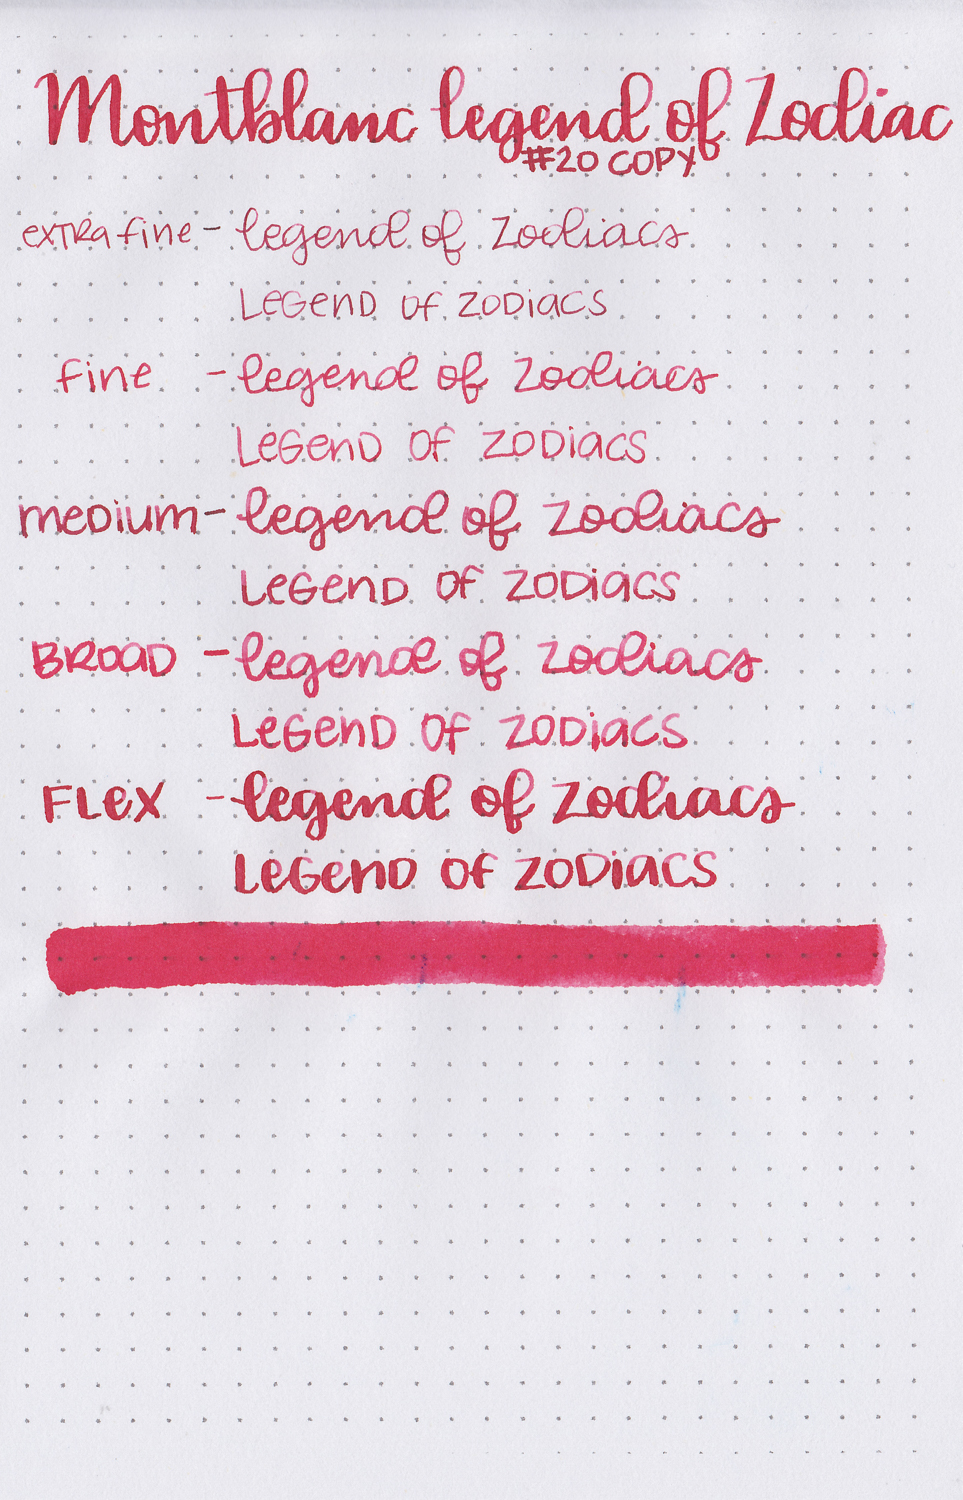 Montblanc legend of Zodiac
#20 COPY
extra fine - legend of Zodiacs
Legend of Zodiacs
fine - legend of Zodiacs
Legend of Zodiacs
medium - legend of Zodiacs
Legend of Zodiacs
Broad - legend of Zodiacs
Legend of Zodiacs
Flex - legend of Zodiacs
Legend of Zodiacs